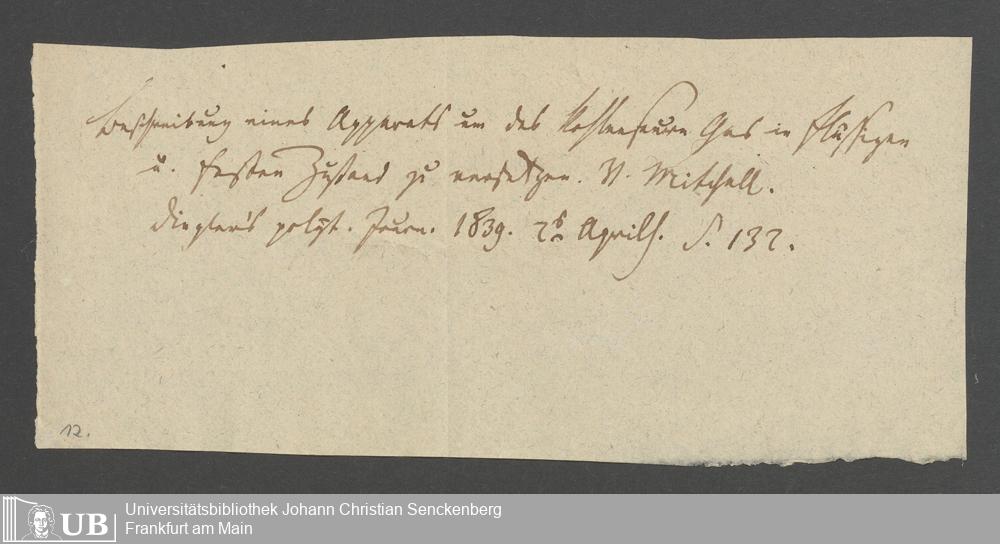 Beschreibung eines Apparats um das kohlensaure Gas in flüssigen
u. festen Zustand zu versetzen. V. Mitchell.
Dingler's polyt. Journ. 1839. 2s Aprilh. S. 132.
12.
UB
Universitätsbibliothek Johann Christian Senckenberg
Frankfurt am Main